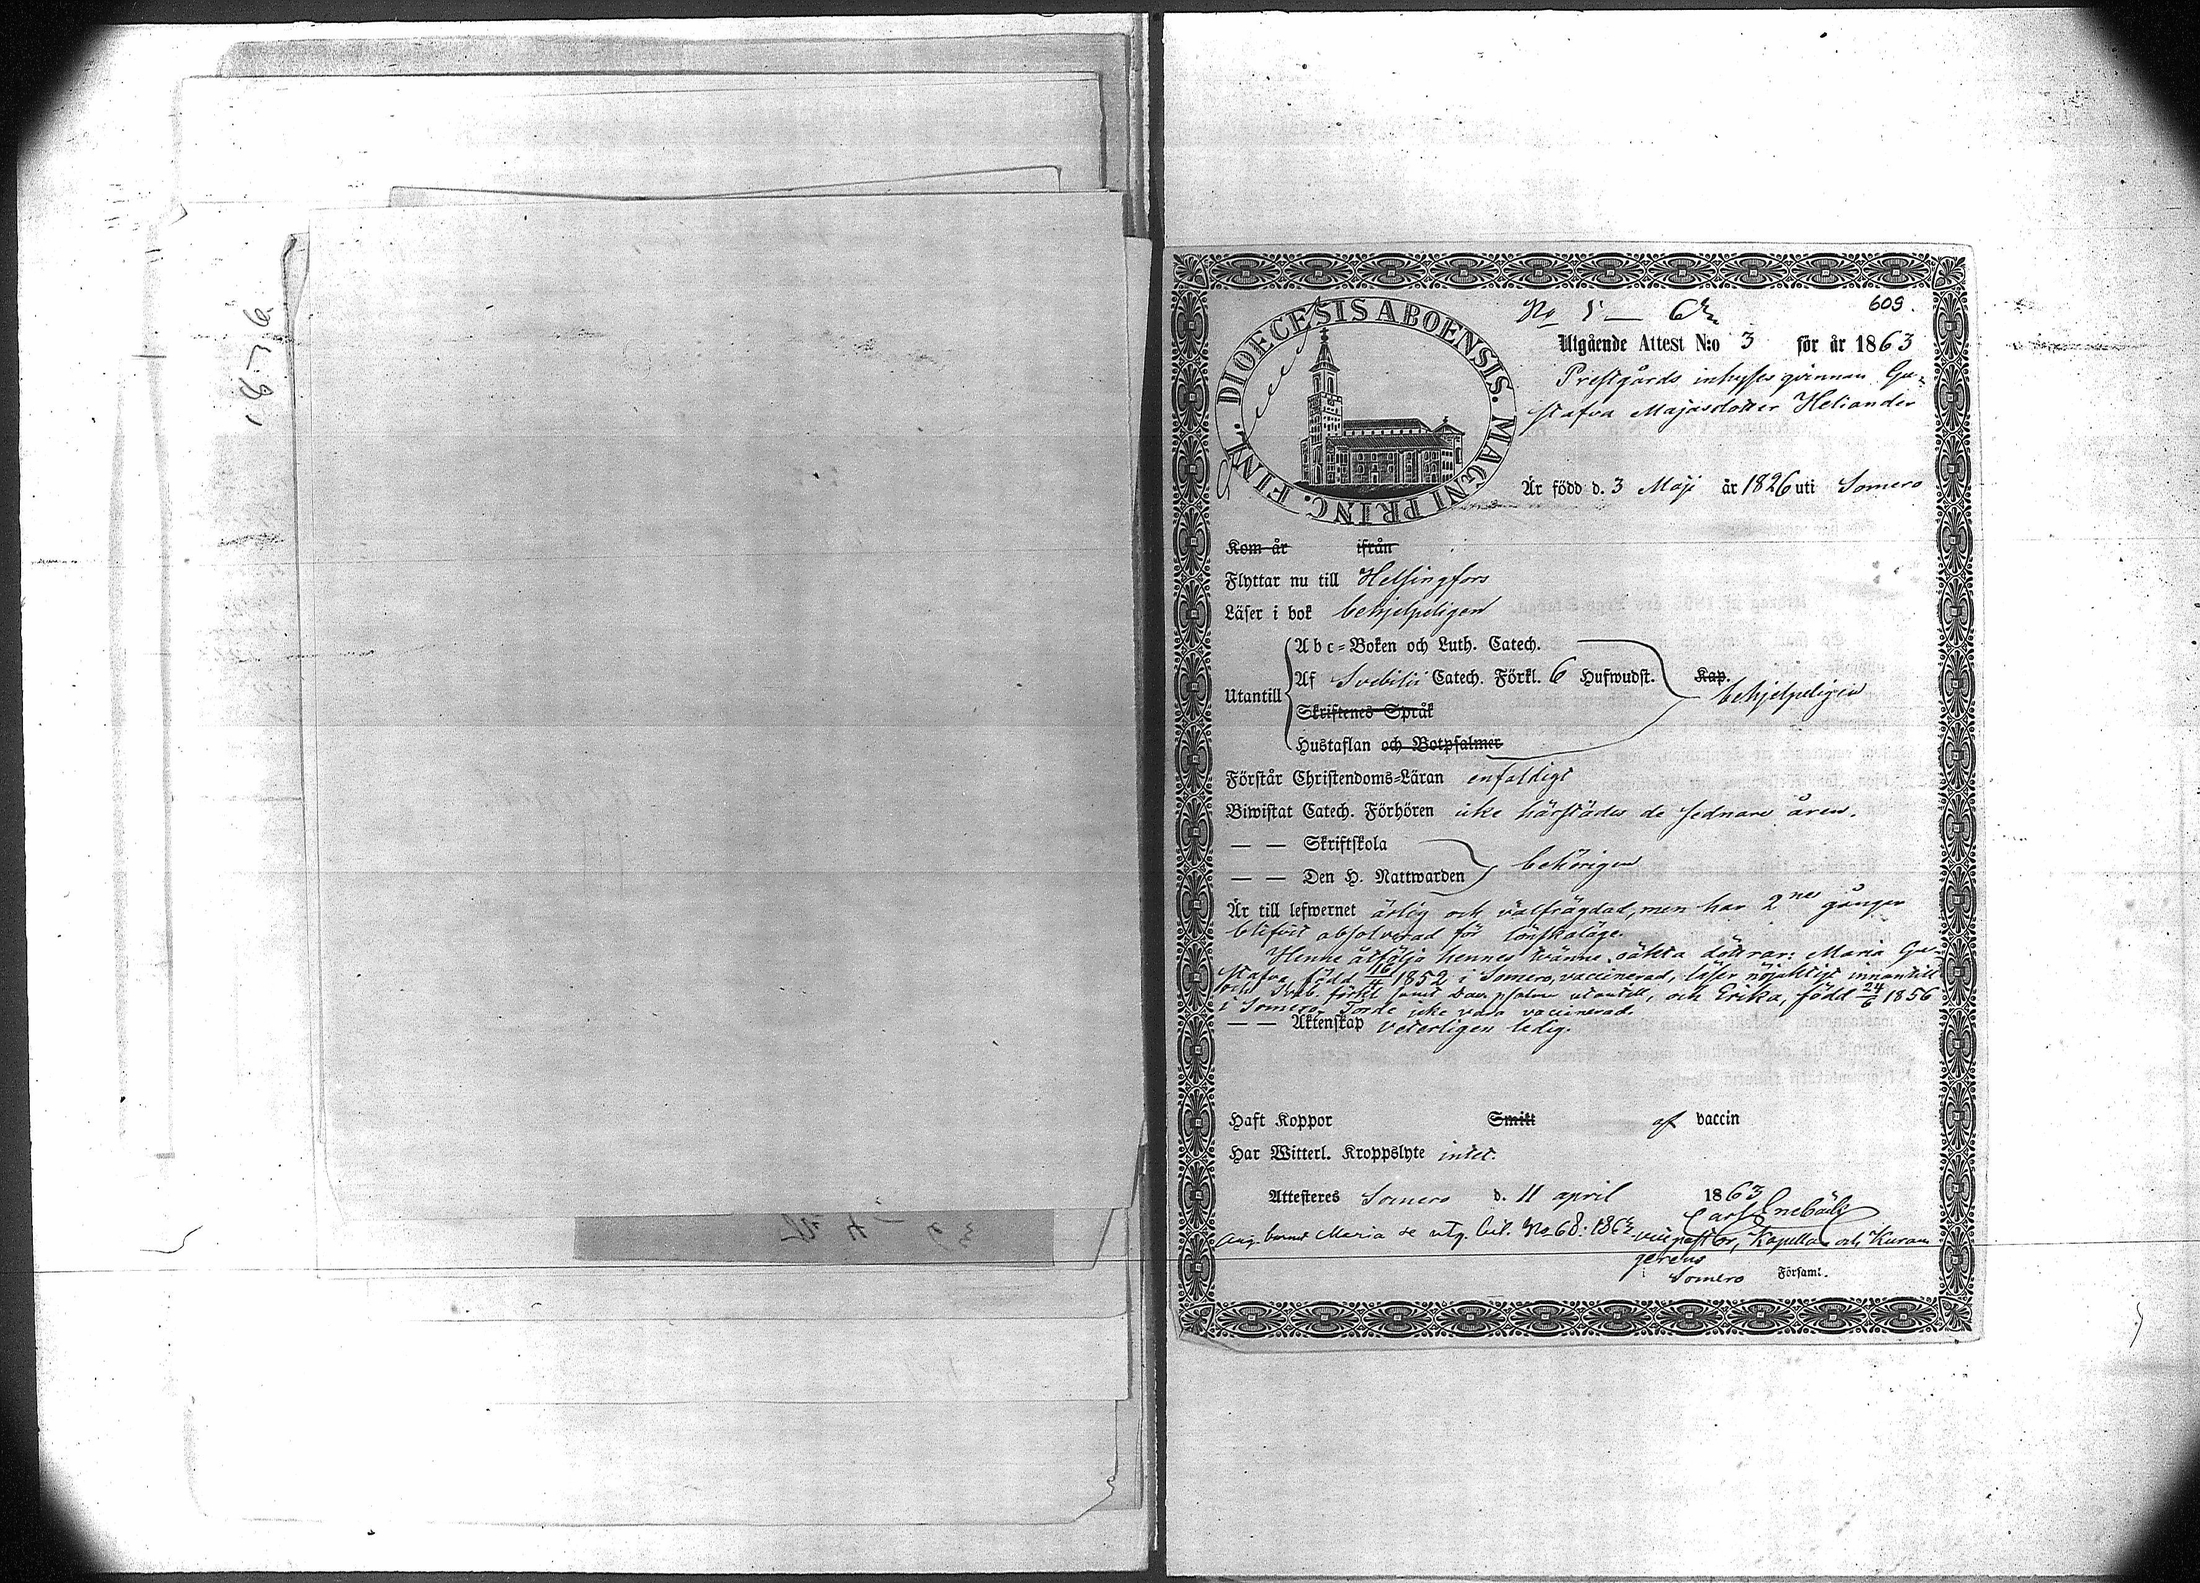 609.
Utgående Attest N:o 3 för år 1863
Prestgårds inhyses qvinnan Gu-
stafva Majasdotter Heliander
DIOECESIS ABOENSIS. MAGNI PRINC. FINL.
Är född d. 3 Maji år 1826 uti Somero
Kom år ifrån
Flyttar nu till Helsingfors
Läser i bok behjelpeligen
Abc-Boken och Luth. Catech.
Utantill Af Svebilii Catech. Förkl. 6 Hufwudst. Kap. behjelpeligen
Skriftenes Språk
Hustaflan och Botpsalmer
Förstår Christendoms-Läran enfaldigt
Biwistat Catech. Förhören icke härstädes de sednare åren.
— — Skriftskola
— — Den H. Nattwarden behörigen
Är till lefwernet ärlig och välfrägdad, men har 2ne gånger
blifvit absolverad för lönskaläge.
Henne åtfölja hennes tvänne oäkta döttrar: Maria Gu-
stafva född 16/4 1852 i Somero, vaccinerad, läser nöjaktigt innantill
och Sveb. förkl. samt utantill, och Erika, född 24/6 1856
i Somero. Torde icke vara vaccinerad.
— — Äktenskap veterligen ledig.
Haft Koppor Smitt af vaccin
Har Witterl. Kroppslyte intet.
Attesteres Somero d. 11 april 1863
Carl Enebäck
ang. barnet Maria se utg. bet. No 68: 1863
vicepastor, Kapellan och Kuram
gerens
i Somero Församl.